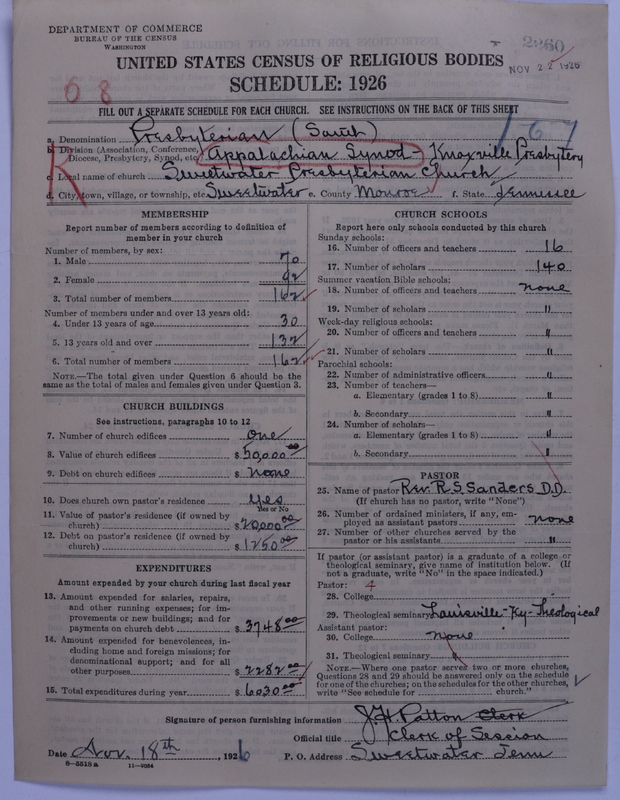 DEPARTMENT OF COMMERCE
BUREAU OF THE CENSUS
WASHINGTON
2260
NOV 22 1926
UNITED STATES CENSUS OF RELIGIOUS BODIES
SCHEDULE: 1926
68
FILL OUT A SEPARATE SCHEDULE FOR EACH CHURCH. SEE INSTRUCTIONS ON THE BACK OF THIS SHEET
167
a. Denomination Presbyterian (South)
b. Division (Association, Conference, Diocese, Presbytery, Synod, etc. Appalachian Synod - Knoxville Presbytery
c. Local name of church Sweetwater Presbyterian Church
d. City, town, village, or township, etc. Sweetwater e. County Monroe f. State Tennessee
MEMBERSHIP
Report number of members according to definition of
member in your church
Number of members, by sex:
1. Male 70
2. Female 92
3. Total number of members 162
Number of members under and over 13 years old:
4. Under 13 years of age 30
5. 13 years old and over 132
6. Total number of members 162
NOTE.—The total given under Question 6 should be the
same as the total of males and females given under Question 3.
CHURCH BUILDINGS
See instructions, paragraphs 10 to 12
7. Number of church edifices One
8. Value of church edifices $50,000.00
9. Debt on church edifices $ None
10. Does church own pastor's residence Yes
Yes or No
11. Value of pastor's residence (if owned by
church) $20,000.00
12. Debt on pastor's residence (if owned by
church) $1250.00
EXPENDITURES
Amount expended by your church during last fiscal year
13. Amount expended for salaries, repairs,
and other running expenses; for im-
provements or new buildings; and for
payments on church debt $3748.00
14. Amount expended for benevolences, in-
cluding home and foreign missions; for
denominational support; and for all
other purposes $2282.00
15. Total expenditures during year $6030.00
CHURCH SCHOOLS
Report here only schools conducted by this church
Sunday schools:
16. Number of officers and teachers 16
17. Number of scholars 140
Summer vacation Bible schools:
18. Number of officers and teachers none
19. Number of scholars "
Week-day religious schools:
20. Number of officers and teachers "
21. Number of scholars "
Parochial schools:
22. Number of administrative officers "
23. Number of teachers—
a. Elementary (grades 1 to 8) "
b. Secondary "
24. Number of scholars—
a. Elementary (grades 1 to 8) "
b. Secondary "
PASTOR
25. Name of pastor Rev. R. S. Sanders D.D.
(If church has no pastor, write "None")
26. Number of ordained ministers, if any, em-
ployed as assistant pastors none
27. Number of other churches served by the
pastor or his assistants "
If pastor (or assistant pastor) is a graduate of a college or
theological seminary, give name of institution below. (If
not a graduate, write "No" in the space indicated.)
Pastor: 4
28. College
29. Theological seminary Louisville-Ky-Theological
Assistant pastor:
30. College none
31. Theological seminary "
NOTE.—Where one pastor serves two or more churches,
Questions 28 and 29 should be answered only on the schedule
for one of the churches; on the schedules for the other churches,
write "See schedule for church."
Signature of person furnishing information J H Patton Clerk
Official title Clerk of Session
Date Nov. 18th, 1926 P. O. Address Sweetwater Tenn
8-5518 a 11-4064